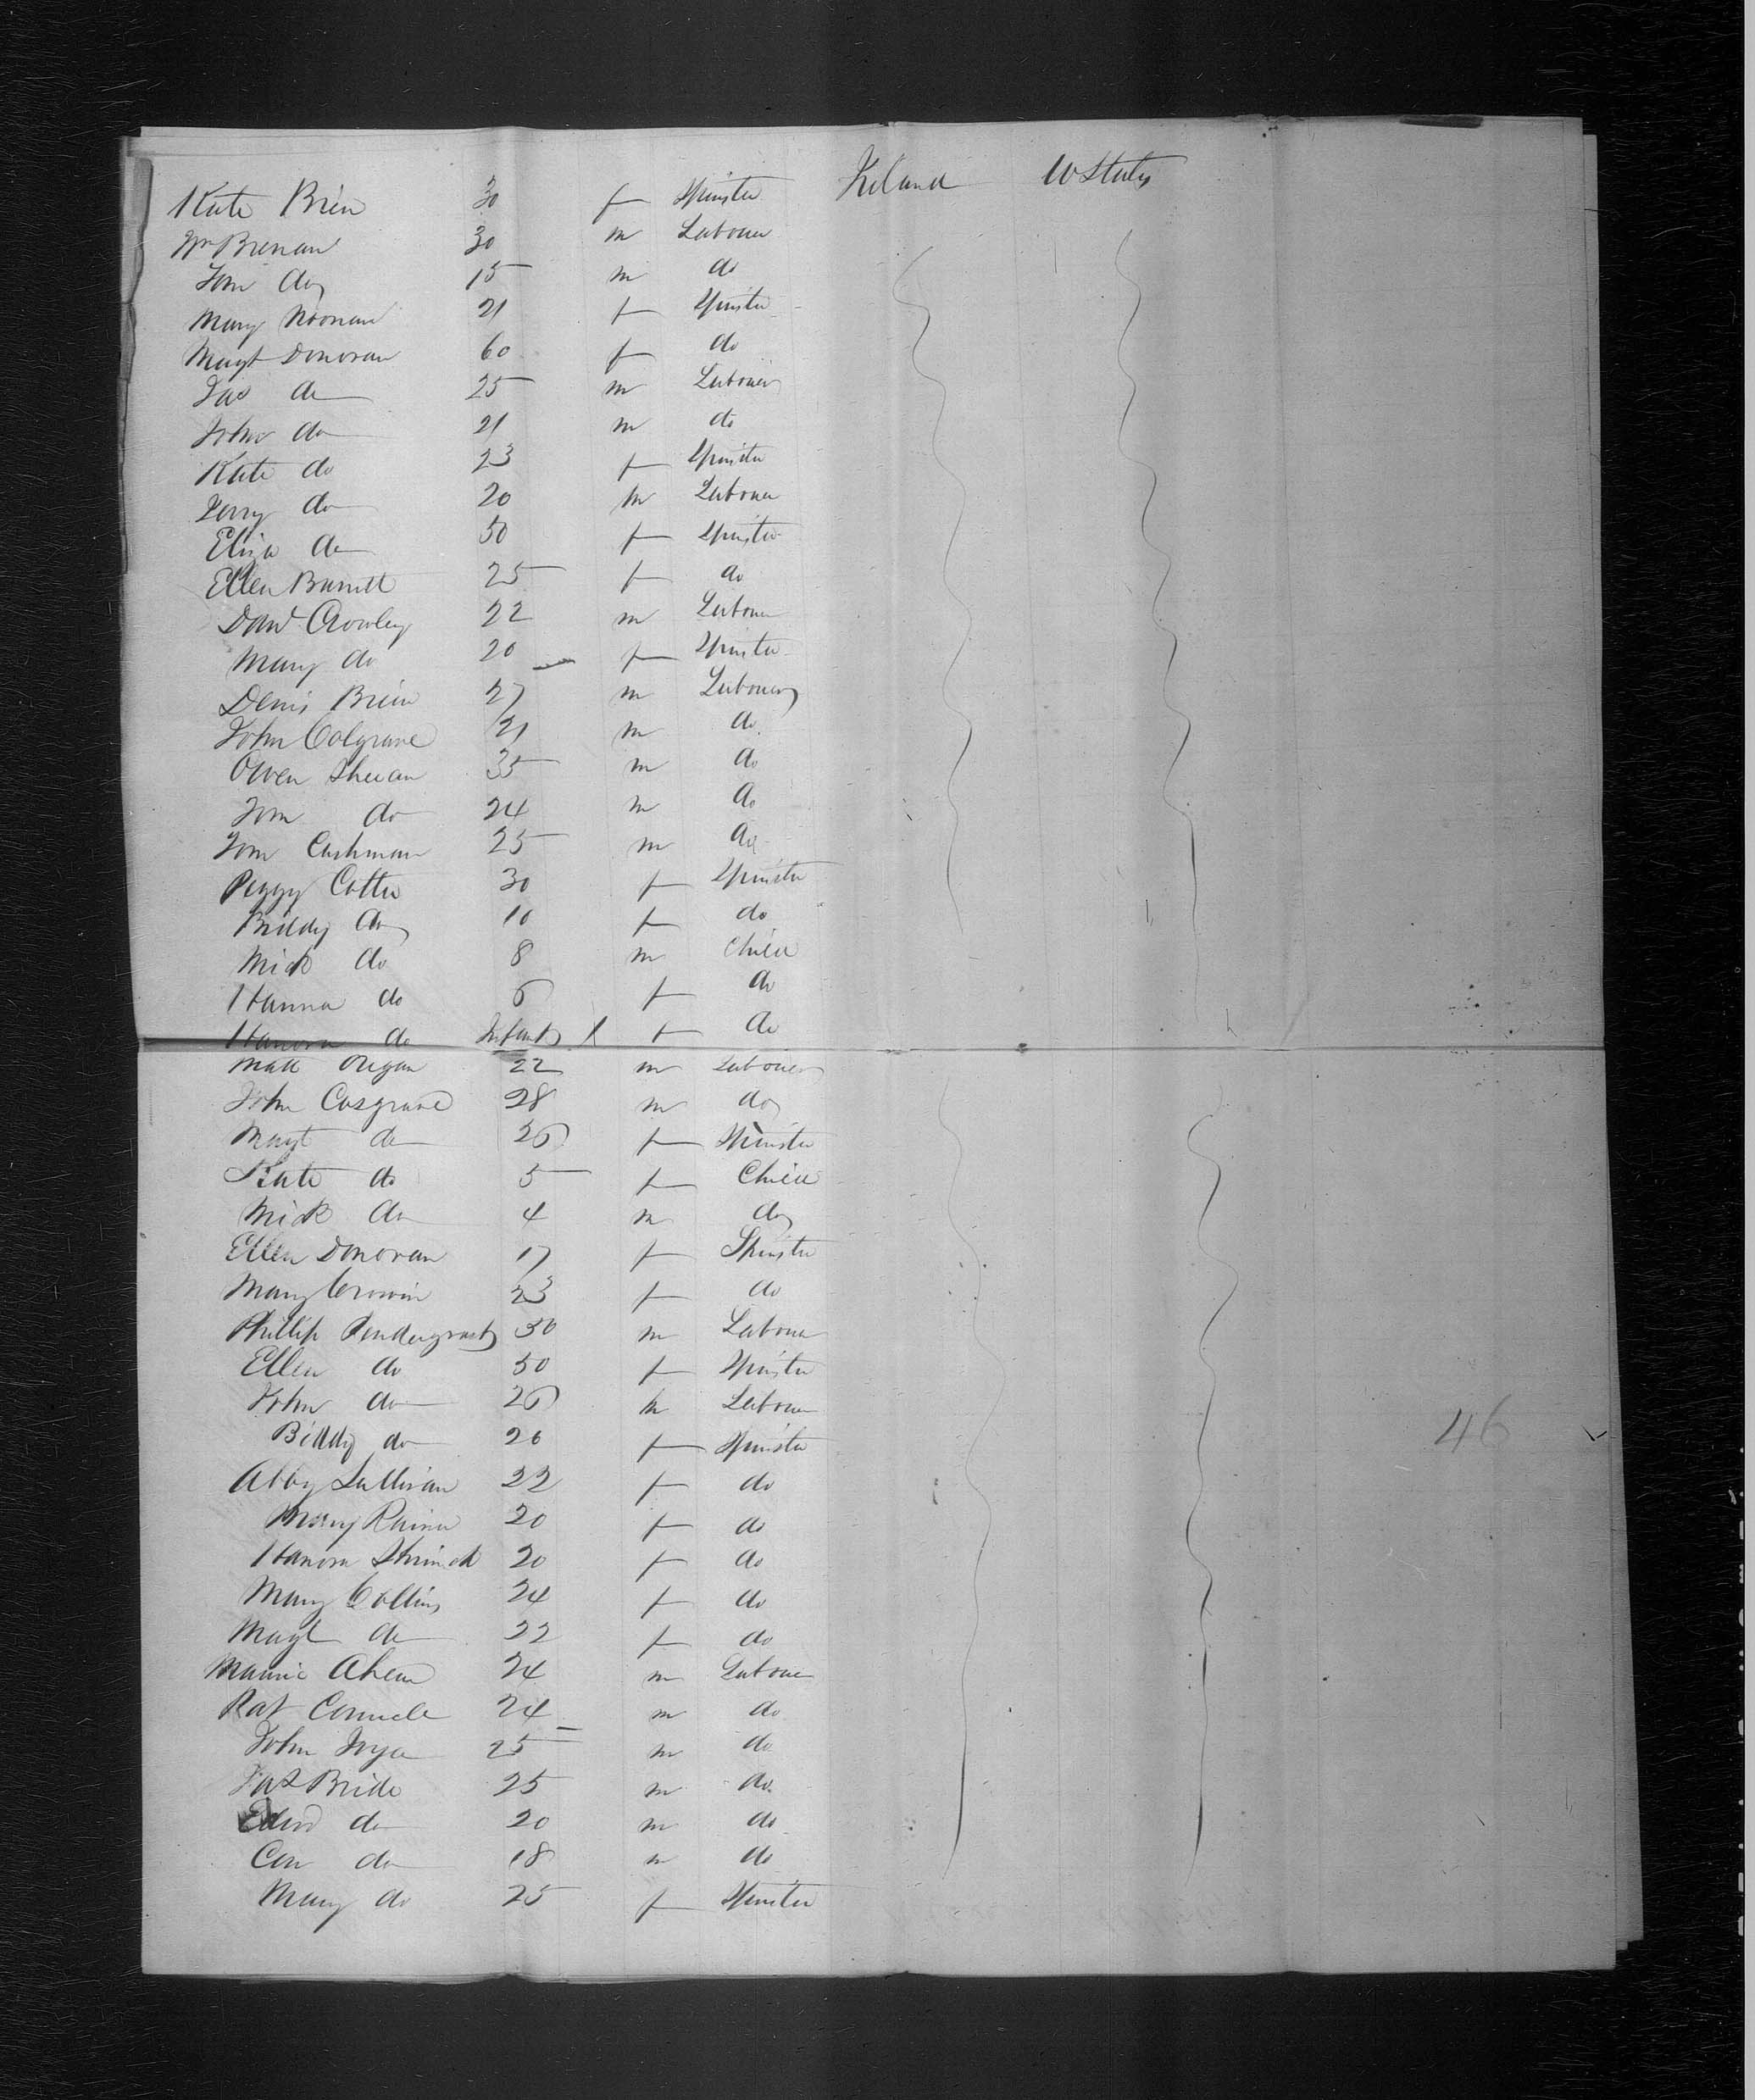 Kate Brien 30 f Spinster Ireland U States
Wm Brenan 30 m Labourer
Tom do 15 m do
Mary Noonan 21 f Spinster
Magt Donovan 60 f do
Jas do 25 m Labourer
John do 21 m do
Kate do 23 f Spinster
Jerry do 20 m Labourer
Eliza do 50 f Spinster
Ellen Barrett 25 f do
Danl Crowley 22 m Labourer
Mary do 20 f Spinster
Denis Brien 27 m Labourer
John Colgrave 21 m do
Owen Sheean 35 m do
Tom do 24 m do
Tom Cashman 25 m do
Peggy Cotter 30 f Spinster
Biddy do 10 f do
Mick do 8 m Child
Hanna do 6 f do
Hanora do Infant 1 f do
Matt Oregan 22 m Labourer
John Cosgrave 28 m do
Magt do 26 f Spinster
Kate do 5 f Child
Mick do 4 m do
Ellen Donovan 17 f Spinster
Mary Cronin 23 f do
Phillip Pendergrast 50 m Labourer
Ellen do 50 f Spinster
John do 26 m Labourer
Biddy do 20 f Spinster 46
Abby Sullivan 22 f do
Mary 20 f do
Hanora 20 f do
Mary Collins 24 f do
Magt do 22 f do
Maurice Ahern 24 m Labourer
Pat Connell 24 m do
John 25 m do
Jas Bride 25 m do
Edwd do 20 m do
Con do 18 m do
Mary do 25 f Spinster